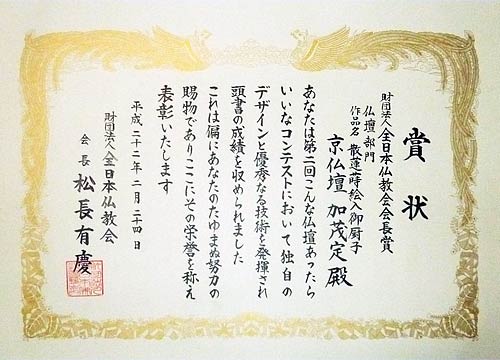 賞状
財団法人全日本仏教会会長賞
仏壇部門
作品名 散蓮蒔絵入御厨子
京仏壇 加茂定殿
あなたは第二回こんな仏壇あったら
いいなコンテストにおいて独自の
デザインと優秀なる技術を発揮され
頭書の成績を収められました
これは偏にあなたのたゆまぬ努力の
賜物でありここにその栄誉を称え
表彰いたします
平成二十二年二月二十四日
財団法人全日本仏教会
会長 松長有慶